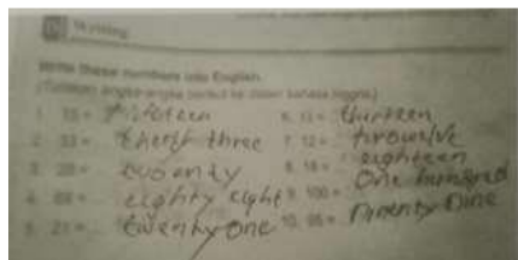 Writing
Write these numbers into English.
(Tuliskan angka-angka berikut ke dalam bahasa Inggris.)
1. 15 = fifeteen
2. 33 = therty three
3. 20 = twoenty
4. 88 = eighty eight
5. 21 = twenty one
6. 13 = thurteen
7. 12 = twowelve
8. 18 = eighteen
9. 100 = One hundred
10. = ninenty nine